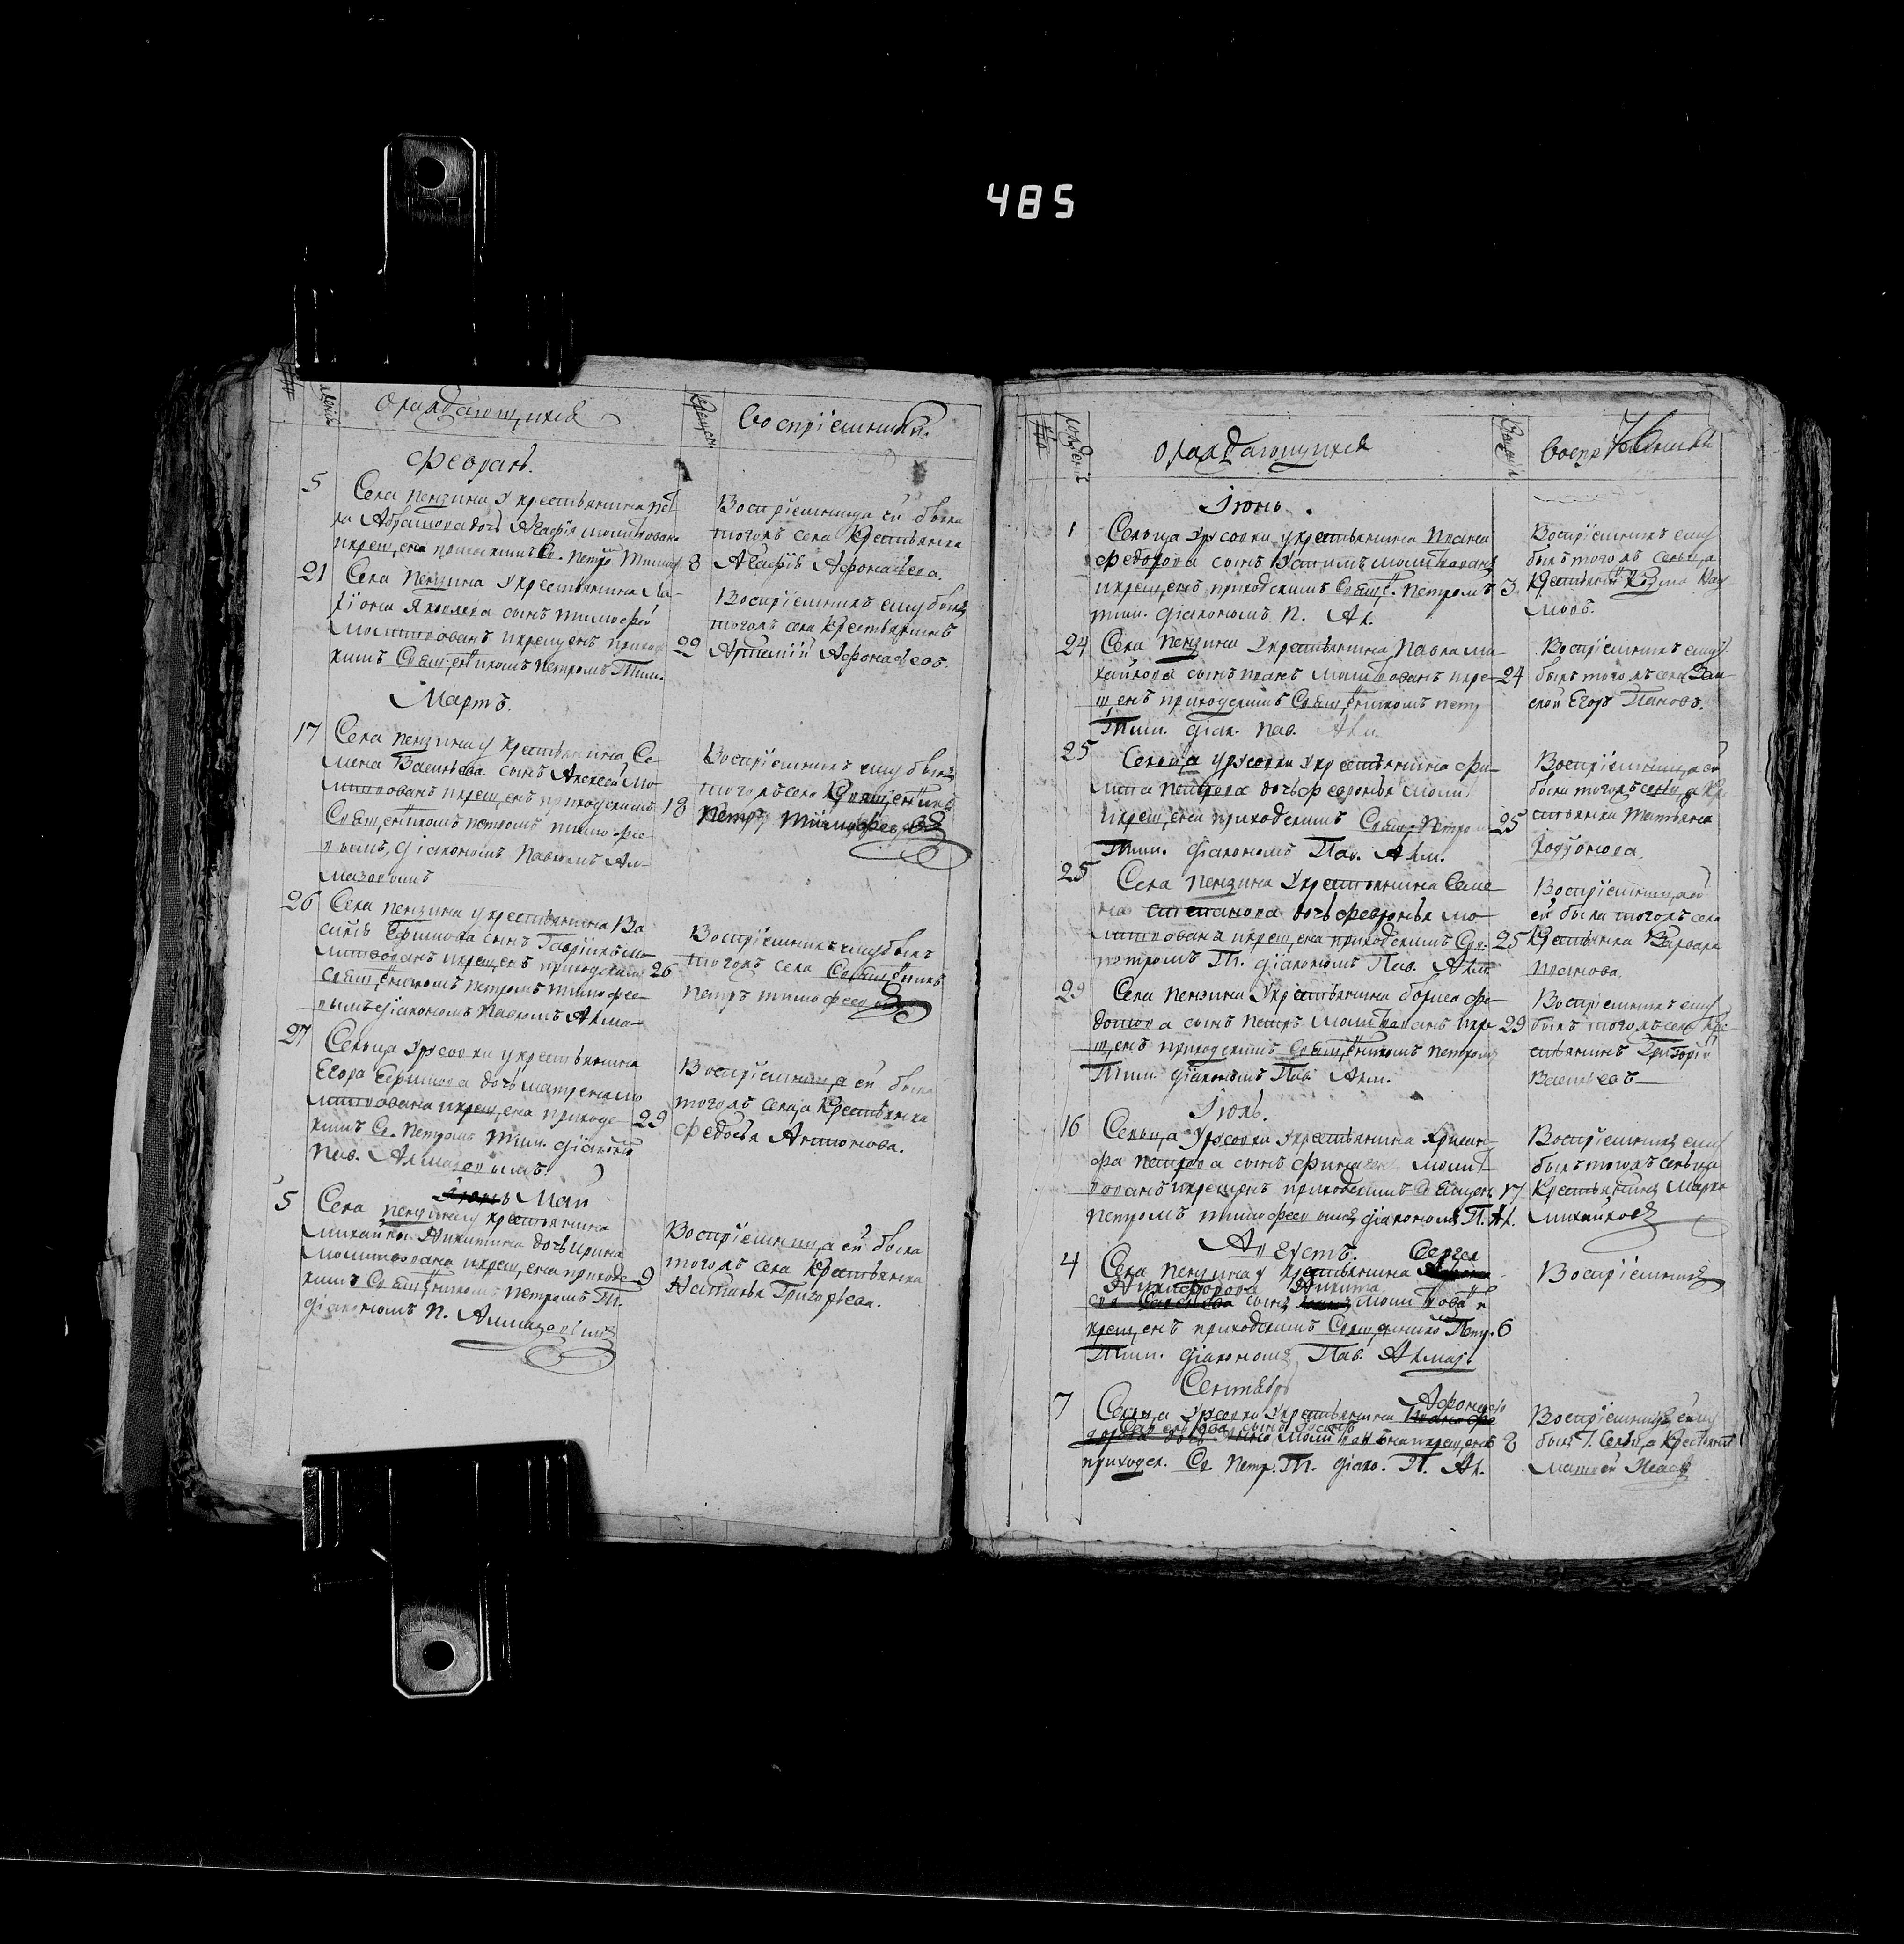 485
о раждающихся
воспріемники.
Февраль.
5 Села пензина у крестьянина
Абрамова дочь Агафія молитвована
и крещена приходскимъ Св. петро Тимоф. 8
Воспріемница ей была
тогожъ села Крестьянка
Агафія Афонасьева.
21 Села пензина у крестьянина Ла-
ріона Яковлева сынъ тимофей
молитвованъ и крещенъ приход
скимъ Священникомъ петромъ Тим. 22
Воспріемникъ ему былъ
тогожъ села крестьянинъ
Афонасьевъ.
Мартъ.
17 Села пензина у крестьянина Се-
мена Васильева сынъ Алексей мо-
литвованъ и крещенъ приходскимъ 18
Священникомъ петромъ тимофее-
вымъ, діакономъ павломъ Ал-
мазовымъ
Воспріемникъ ему былъ
тогожъ села Священникъ
Петръ Тимофеевъ
26 Села пензина у крестьянина Ва
силія Ефимова сынъ Гавріилъ мо-
литвованъ и крещенъ приходскимъ 26
священникомъ петромъ тимофее-
вымъ діакономъ павломъ Алма-
Воспріемникъ ему былъ
тогожъ села Священникъ
петръ тимофеевъ
27 Сельца Урусовки у крестьянина
Егора Ефимова дочь матрена мо
литвована и крещена приходс-
кимъ Св. петромъ Тим. діакономъ 29
Пав. Алмазовымъ.
Воспріемница ей была
тогожъ сельца Крестьянка
Федосья Антонова.
Май
5 Села пензина у крестьянина
Михайлы Никитина дочь ирина
молитвована и крещена приходс- 9
кимъ Священникомъ петромъ Т.
діакономъ П. Алмазовымъ
Воспріемница ей была
тогожъ села Крестьянка
Наталья Григорьева.
о раждающихся
воспріемники
Іюнь.
1 Сельца урусовки у крестьянина
Федорова сынъ Устинъ молитвованъ
и крещенъ приходскимъ Свящ. петромъ 3
тим. діакономъ П. Ал.
Воспріемникъ ему
былъ тогожъ сельца
Крестьянин Козма Нау
мовъ.
24 Села пензина у крестьянина Павла ми-
хайлова сынъ иванъ молитвованъ и кре- 24
щенъ приходскимъ Священникомъ петр
Тим. діак. пав. Алм.
Воспріемникъ ему
былъ тогожъ села
Егоръ Пановъ.
25 Сельца урусовки у крестьянина фи-
липа петрова дочь февронья молит.
и крещена приходскимъ Свящ. Петром 25
Тим. діакономъ Пав. Алм.
Воспріемница ей
была тогожъ сельца кре
стьянка Татьяна
25 Села пензина у крестьянина Семе-
на степанова дочь февронья мо-
литвована и крещена приходскимъ Свя. 25
петромъ Т. діакономъ Пав. Алм
Воспріемницей
ей была тогожъ села
Крестьянка Варвара
иванова.
29 Села пензина у крестьянина бориса фе-
дотова сынъ петръ молитвованъ и кре- 29
щенъ приходскимъ Священникомъ петромъ
Тим. діакономъ Пав. Алм.
Воспріемникъ ему
былъ тогожъ села Кре-
стьянинъ Григорій
Васильевъ
Іюль.
16 Сельца Урусовки у крестьянина
петрова сынъ молит
вованъ и крещенъ приходскимъ Священ. 17
петромъ тимофеевымъ діакономъ П. Ал.
Воспріемникъ ему
былъ тогожъ сельца
Крестьянинъ Марко
Михайловъ
Августъ.
4 Села пензина у крестьянина Сергея
Никифорова Никита
сынъ молитвованъ и
крещенъ приходскимъ Священнико Петр. 6
Тим. діакономъ Пав. Алмазъ
Воспріемникъ
Сентябрь
7 Сельца урусовки у крестьянина Афонасья
сынъ
молитвованъ и крещенъ 8
приходск. Св. петр. Т. діако. П. Ал.
Воспріемникъ ему
былъ Т. Сельца Крестьянин